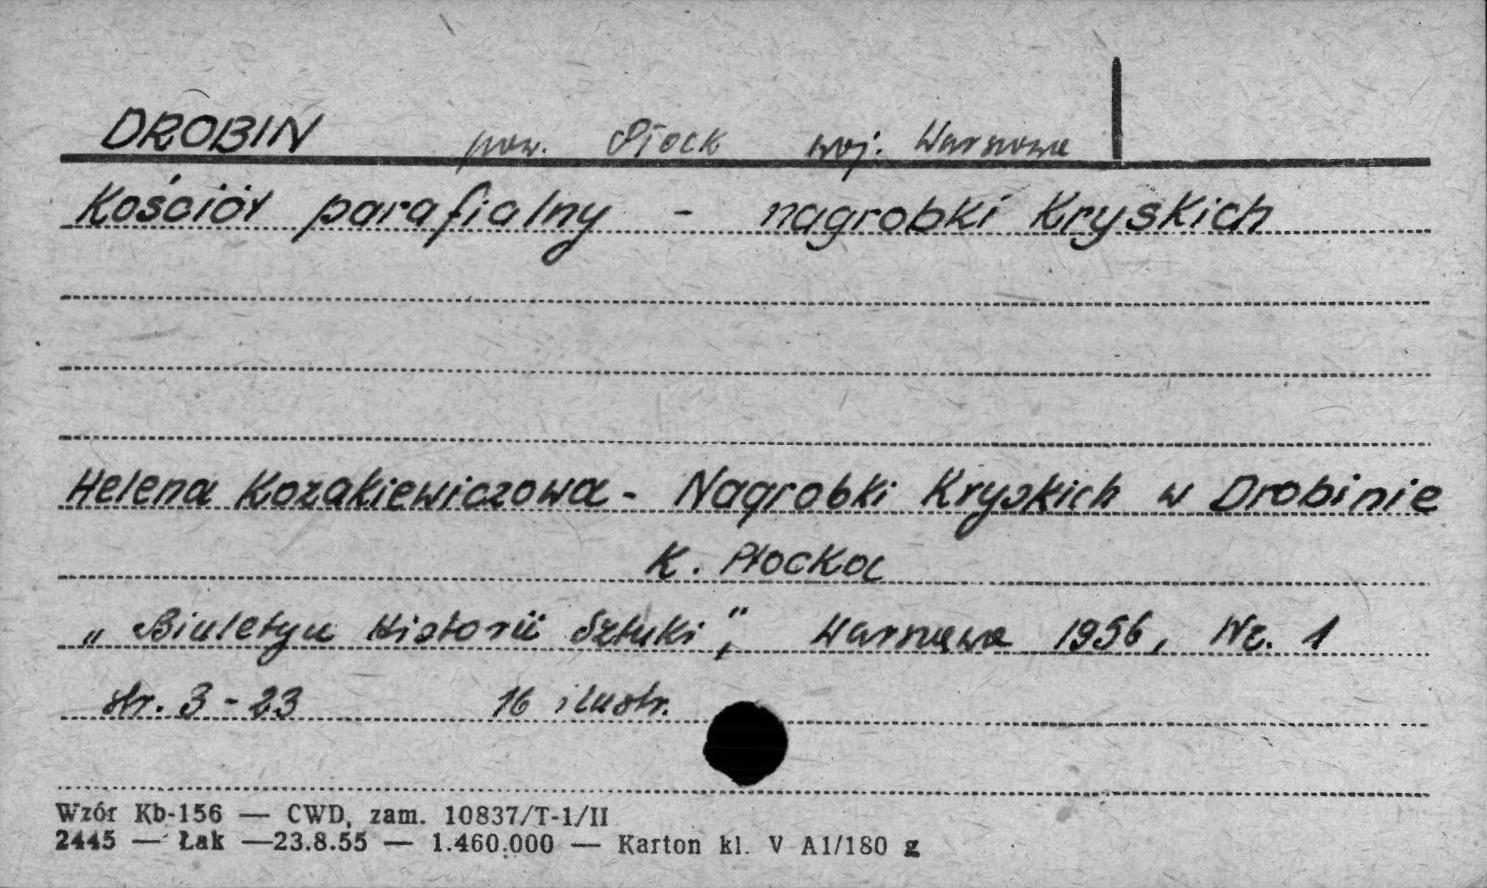 DROBIN pow. Płock woj. Warszawa
Kościół parafialny - nagrobki Kryskich
Helena Kozakiewiczowa - Nagrobki Kryskich w Drobinie
K. Płocka
„Biuletyn Historii Sztuki”, Warszawa 1956, Nr. 1
str. 3 - 23 16 ilustr.
Wzór Kb-156 — CWD, zam. 10837/T-1/II
2445 — Łak —23.8.55 — 1.460.000 — Karton kl. V A1/180 g